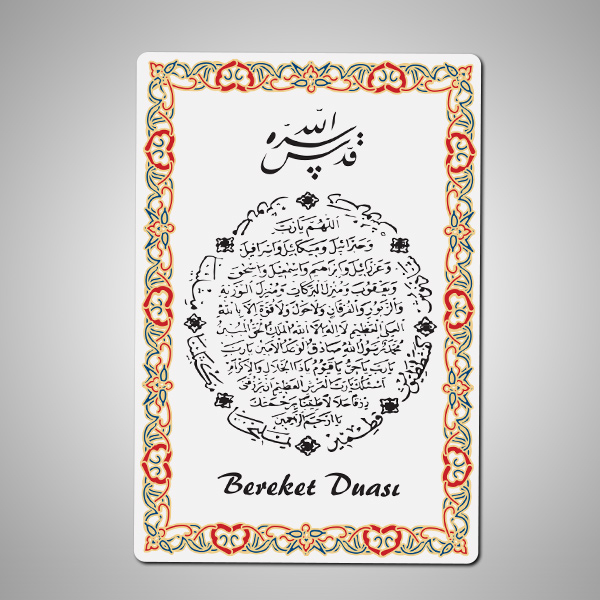 قدس الله سره
اللهم يارب
وجبرائيل وميكائيل واسرافيل
وعزرائيل وابراهيم واسمعيل واسحق
ويعقوب ومنزل البركات ومنزل التورية
والزبور والفرقان ولاحول ولا قوة الا بالله
العلى العظيم لا اله الا الله الملك الحق المبين
محمد رسول الله صادق الوعد الامين يارب
يارب ياحى ياقيوم ياذا الجلال والاكرام
اسئلك يارب العرش العظيم ان ترزقنى
رزقا حلالا طيبا برحمتك
يا ارحم الراحمين
قطمير
Bereket Duası